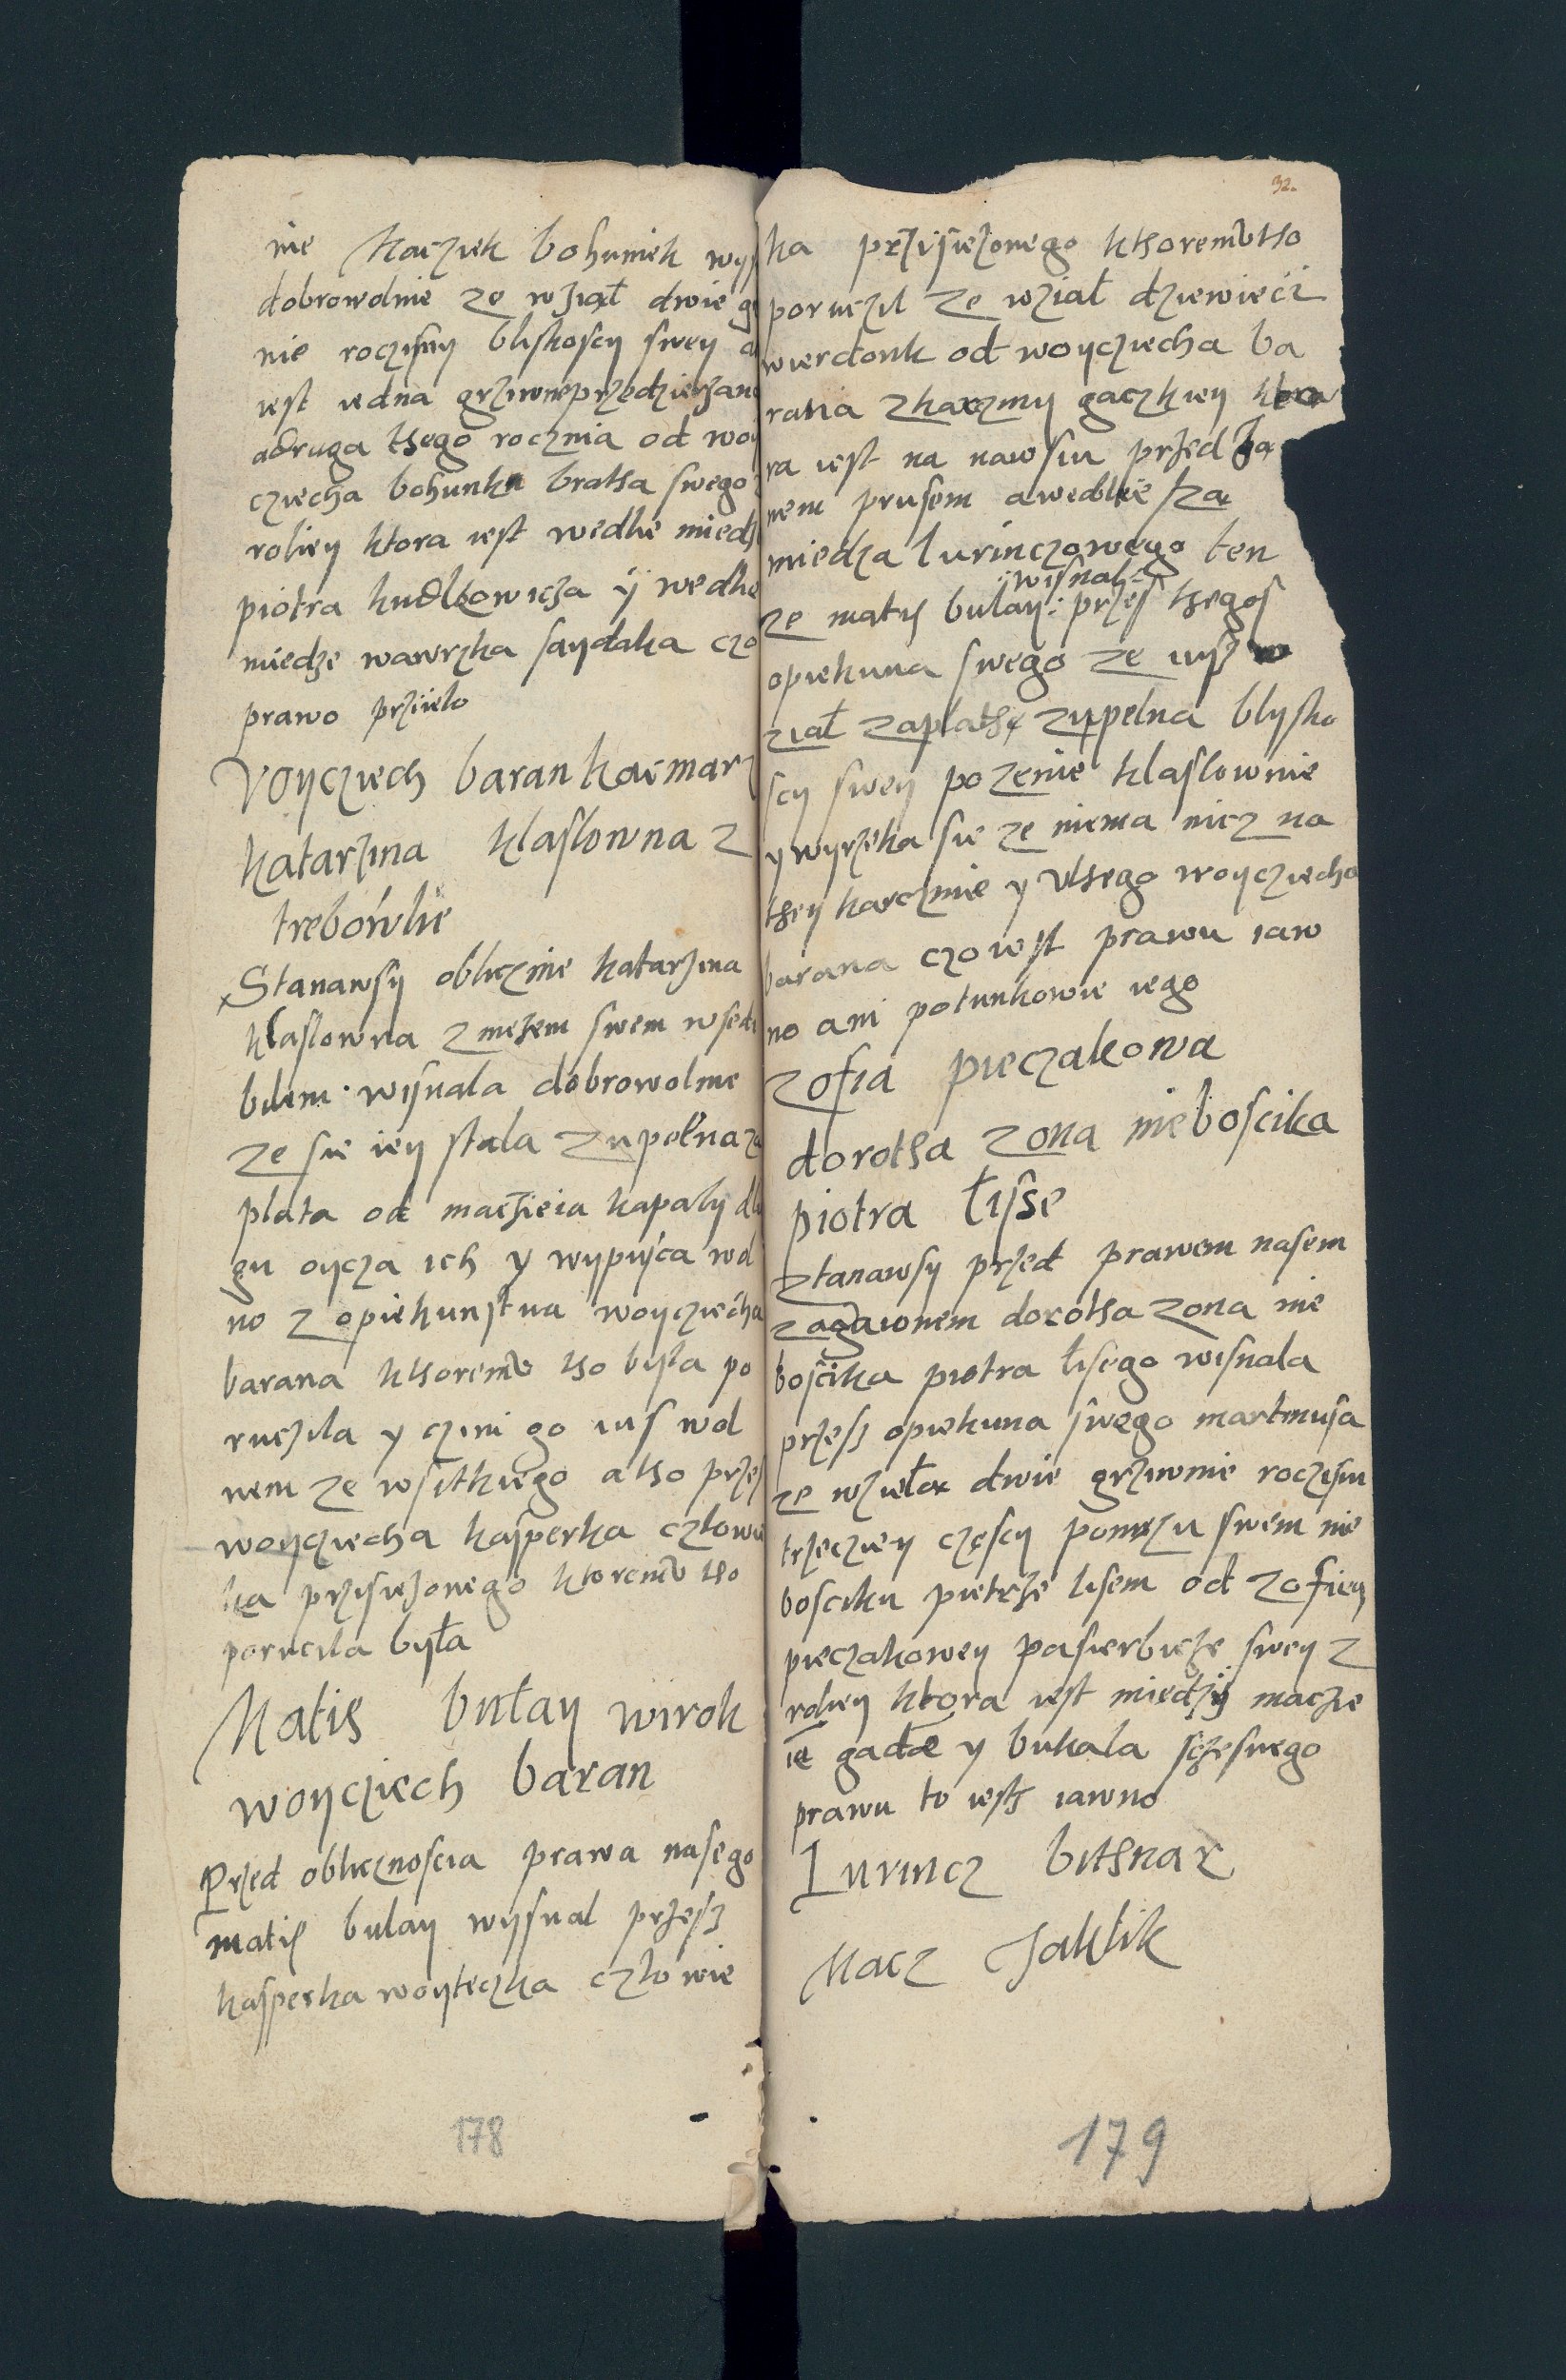 nie Macziek bohuniek wys
dobrowolnie ze wział dwie
nie roczisny bliskoscy swey
iest iedna grziwne przedzierzane
a druga thego rocznia od woy
cziecha bohunka bratha swego
roliey ktora iest wedlie miedzi
piotra kudlkowicza ÿ wedlie
miedze wawrzka saydaka czo
prawo prziielo
Voyciech baran kaĉmarz
katarzina klaslowna z
trebówlie
Stanawsy obliczinie katarzina
klaslowna z mezem swem wsedi
bilem wisnala dobrowolnie
ze sie iey stala zupełna za
plata od macziеia kapaly dlu
gu oycza ich y wypuscą wol
no z opiekunstwa woycziecha
barana kthoremv tho byla po
ruczila y czini go ius wol
nem ze wsitkiego a tho przes
woyciecha kasperka czlowie
ka przisiezonego ktoremv tho
porucila była
Matis bułay wirok
woycziech baran
Przed oblicznoscia prawa nasego
matis bulay wysnal przesz
kasperka woyteczka czlowie
178
32.
ka przisiezonego kthoremv tho
poruczil ze wział dziewiecz
wierdonk od woycziecha ba
rana z karczmy gaczkiey kto
ra iest na nawsiu przed Ja
nem prusem a wedlie za
miedza lurinczowego ten
wisnal
ze matys bulay przes thegos
opiekuna swego ze iusz w
ział zaplathę zupelna blysko
scy swey po zenie klaslownie
y wyrzeka sie ze niema nicz na
they karczmie y v thego woycziecha
barana czo iest prawu iaw
no ani potunkowie iego
zofia pieczakowa
dorotha zona nieboscika
piotra łisse
Ztanawsy przed prawem nasem
zagaionem dorotha zona nie
boscika piotra łisego wisnala
przesz opiekuna swego martinusa
ze wzieła dwie grziwnie roczisni
trzecziey częscy po mezu swem nie
bosciku pietrze lisem od zofiey
pieczakowey pasierbicze swey z
roliey ktora iest miedzy maczie
ie gadae y bukala sczesnego
prawu to iesth iawno
Lurincz bithnar
Macz Jaklik
179